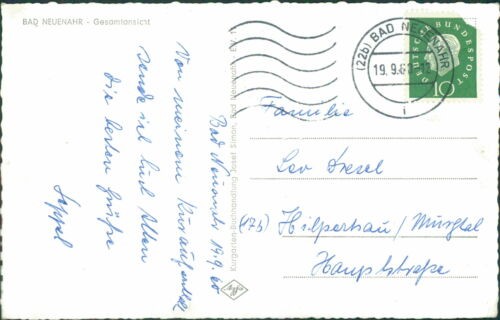 BAD NEUENAHR - Gesamtansicht
Bad Neuenahr 19.9.60
Von meinem Kuraufenthalt
sende ich Euch Allen
die besten Grüße
Seppel
Kurgarten-Buchhandlung Josef Simon, Bad Neuenahr
(22b) BAD NEUENAHR
19.9.60
i
DEUTSCHE BUNDESPOST
10
Familie
Leo Dresel
(17b) Hilpertsau/Murgtal
Hauptstraße
Agfa